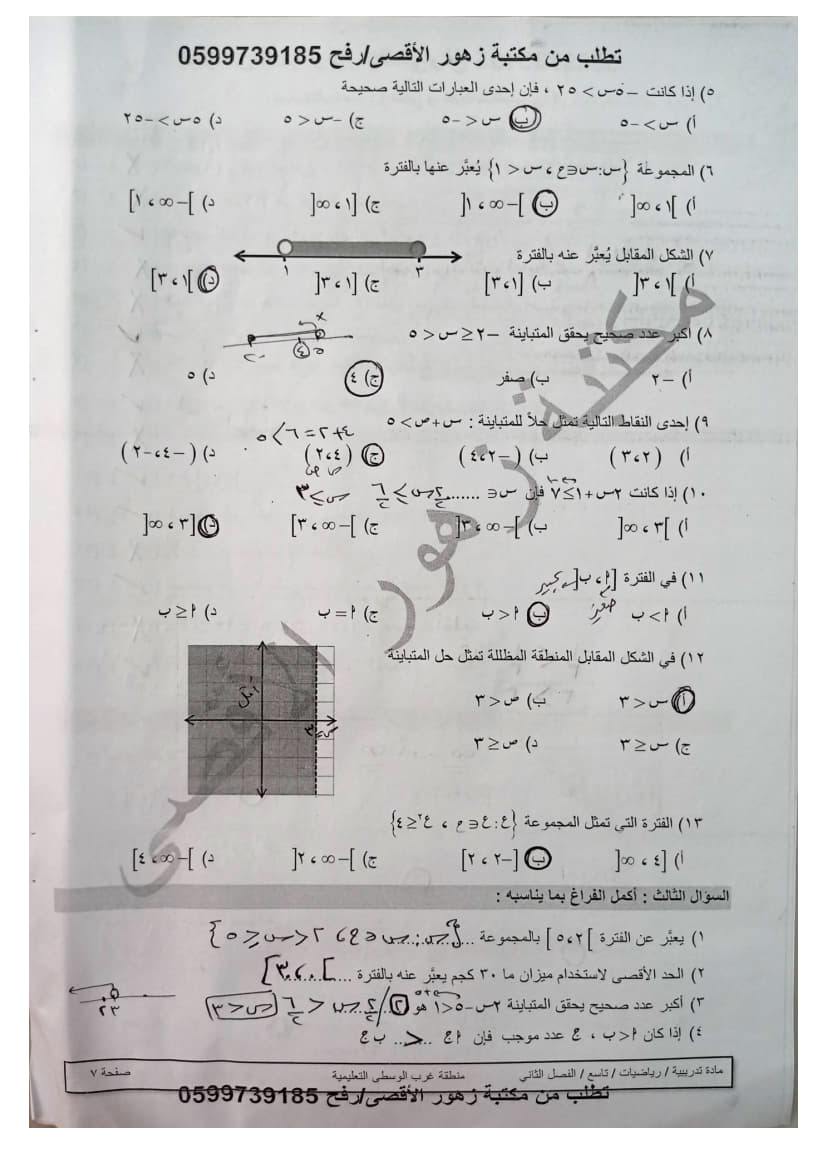 تطلب من مكتبة زهور الأقصى/رفح 0599739185
٥) إذا كانت –٥س > ٢٥ ، فإن إحدى العبارات التالية صحيحة
أ) س > –٥ ب) س < –٥ ج) –س < ٥ د) ٥س > –٢٥
٦) المجموعة {س:س∈ح ، س < ١} يُعبَّر عنها بالفترة
أ) ]١ ، ∞[ ب) ]–∞ ، ١[ ج) [١ ، ∞[ د) ]–∞ ، ١]
٧) الشكل المقابل يُعبَّر عنه بالفترة
١ ٣
أ) ]١ ، ٣[ ب) [١ ، ٣] ج) [١ ، ٣[ د) ]١ ، ٣]
٨) أكبر عدد صحيح يحقق المتباينة –٢ ≤ س < ٥
–٢ ٤ ٥
أ) –٢ ب) صفر ج) ٤ د) ٥
٩) إحدى النقاط التالية تمثل حلاً للمتباينة : س + ص > ٥
٤+٢=٦ > ٥
أ) (٢ ، ٣) ب) (–٢ ، ٤) ج) (٤ ، ٢) د) (–٤ ، –٢)
س ص
١٠) إذا كانت ٢س + ١ ≥ ٧ فإن س∈ ....... ٢س/٢ ≥ ٦/٢ س ≥ ٣
أ) ]٣ ، ∞[ ب) ]–∞ ، ٣[ ج) ]–∞ ، ٣] د) [٣ ، ∞[
١١) في الفترة [أ ، ب[ كبير
صغير
أ) أ < ب ب) أ > ب ج) أ = ب د) أ ≥ ب
١٢) في الشكل المقابل المنطقة المظللة تمثل حل المتباينة
أ) س < ٣ ب) ص < ٣
أقل
س=٣
ج) س ≤ ٣ د) ص ≤ ٣
١٣) الفترة التي تمثل المجموعة {ع:ع∈ح ، ع٢ ≤ ٤}
أ) [٤ ، ∞[ ب) [–٢ ، ٢] ج) ]–∞ ، ٢[ د) ]–∞ ، ٤]
السؤال الثالث : أكمل الفراغ بما يناسبه :
١) يعبَّر عن الفترة ]٢ ، ٥] بالمجموعة ...{س : س ∈ ح ، ٢ < س ≤ ٥}
٢) الحد الأقصى لاستخدام ميزان ما ٣٠ كجم يعبَّر عنه بالفترة ....[٠ ، ٣٠]
٣) أكبر عدد صحيح يحقق المتباينة ٢س – ٥ < ١ هو ٢ / ٢س/٢ < ٦/٢ س < ٣
٢ ٣
٤) إذا كان أ < ب ، ج عدد موجب فإن أج ..<.. ب ج
مادة تدريبية / رياضيات / تاسع / الفصل الثاني منطقة غرب الوسطى التعليمية صفحة ٧
تطلب من مكتبة زهور الأقصى/رفح 0599739185
مكتبة زهور الأقصى